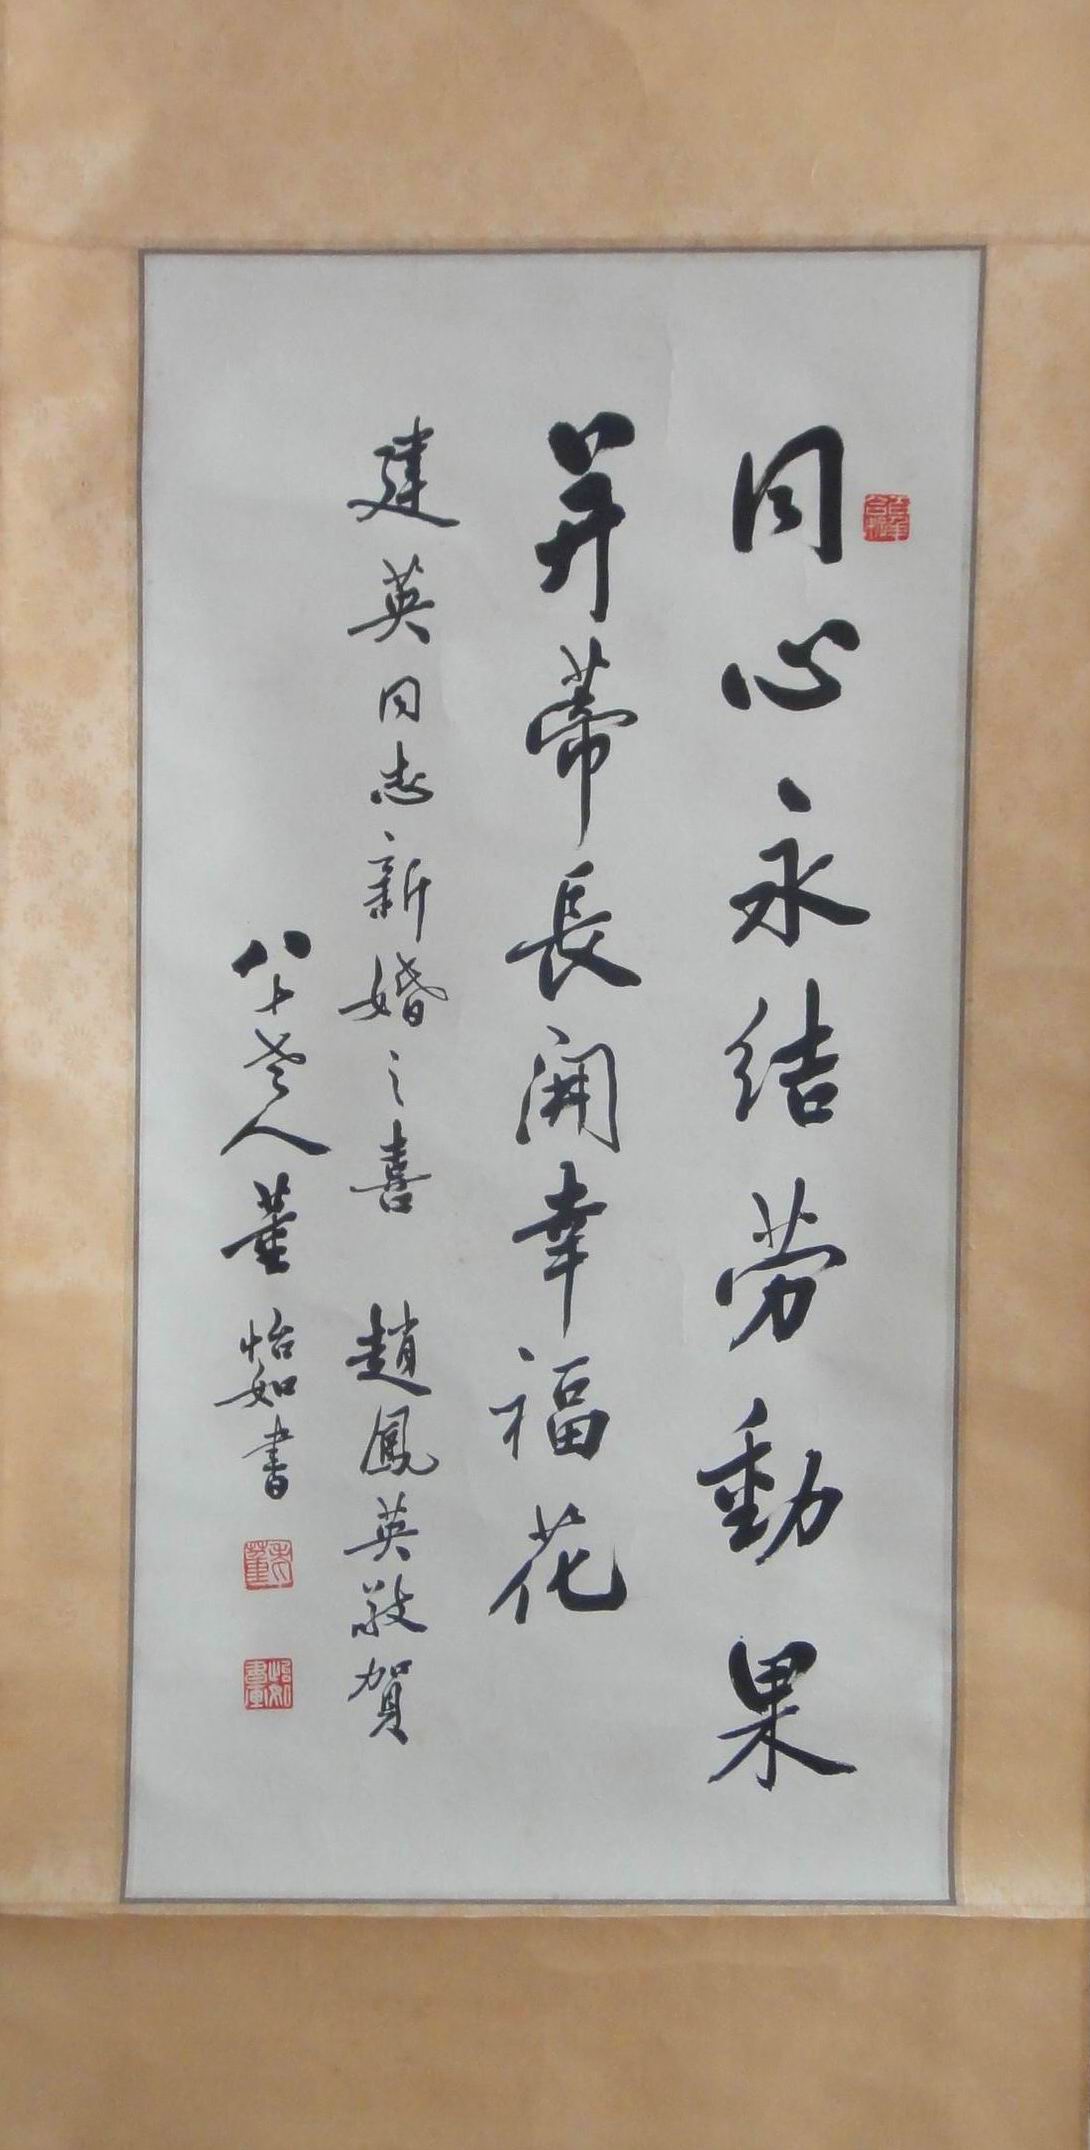 同心永结劳動果
并蒂長開幸福花
建英同志新婚之喜 趙鳳英敬賀
八十老人董怡如書